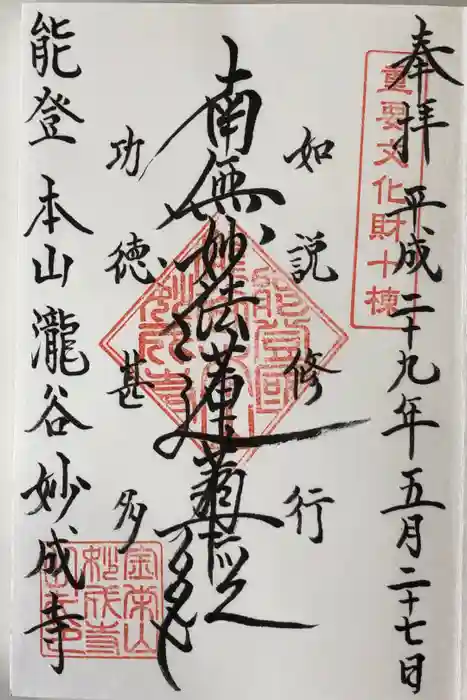 奉拝 平成二十九年五月二十七日
重要文化財十棟
如説修行
南無妙法蓮華経
功徳甚多
能登 本山 瀧谷 妙成寺
金栄山
妙成寺